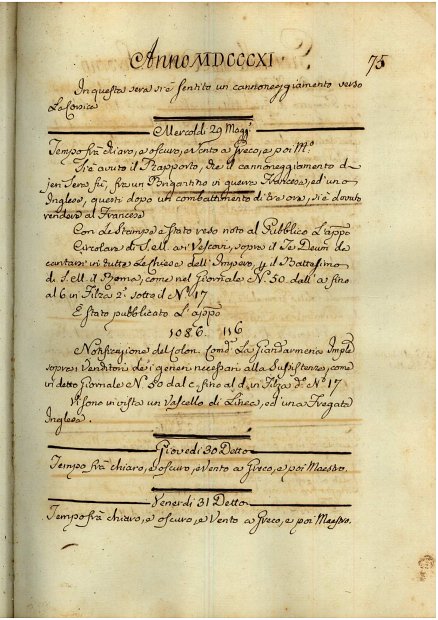 Anno MDCCCXI 75
In questa sera si è sentito un cannoneggiamento verso
La Corsica
Mercoldì 29 Magg:
Tempo frà chiaro, e oscuro, e Vento a Greco, e poi M:o
Si è avuto il Rapporto, che il cannoneggiamento d
jeri Sera fù, fra un Brigantino in guerra Francese, ed' uno
Inglese, questi dopo un combattimento di tre ore, si è dovuto
rendere al Francese
Con le Stampe è Stato reso noto al Pubblico L'app:
Circolare di S. M. ai Vescovi, sopra il Te Deum da
cantarsi in tutte Le Chiese dell' Impero, p il Battesimo
di S. M. il Rè di Roma, come nel Giornale N:o 50. dall' a fino
al 6 in Filza 2: sotto d N:o 17
È Stato pubblicato L'app:
1086. 116
Notificazione del Colon: Com: La Giandarmeria Imple
sopra i Venditori dei generi necessari alla Sussistenza, come
in detto Giornale N:o 50 dal c. fino al d. in Filza d:a N:o 17
Vi sono in vista un Vascello di Linea, ed' una Fregata
Inglesa.
Giovedì 30 Detto
Tempo frà chiaro, e oscuro, e Vento a Greco, e poi Maestro.
Venerdì 31 Detto
Tempo frà chiaro, e oscuro, e Vento a Greco, e poi Maestro.